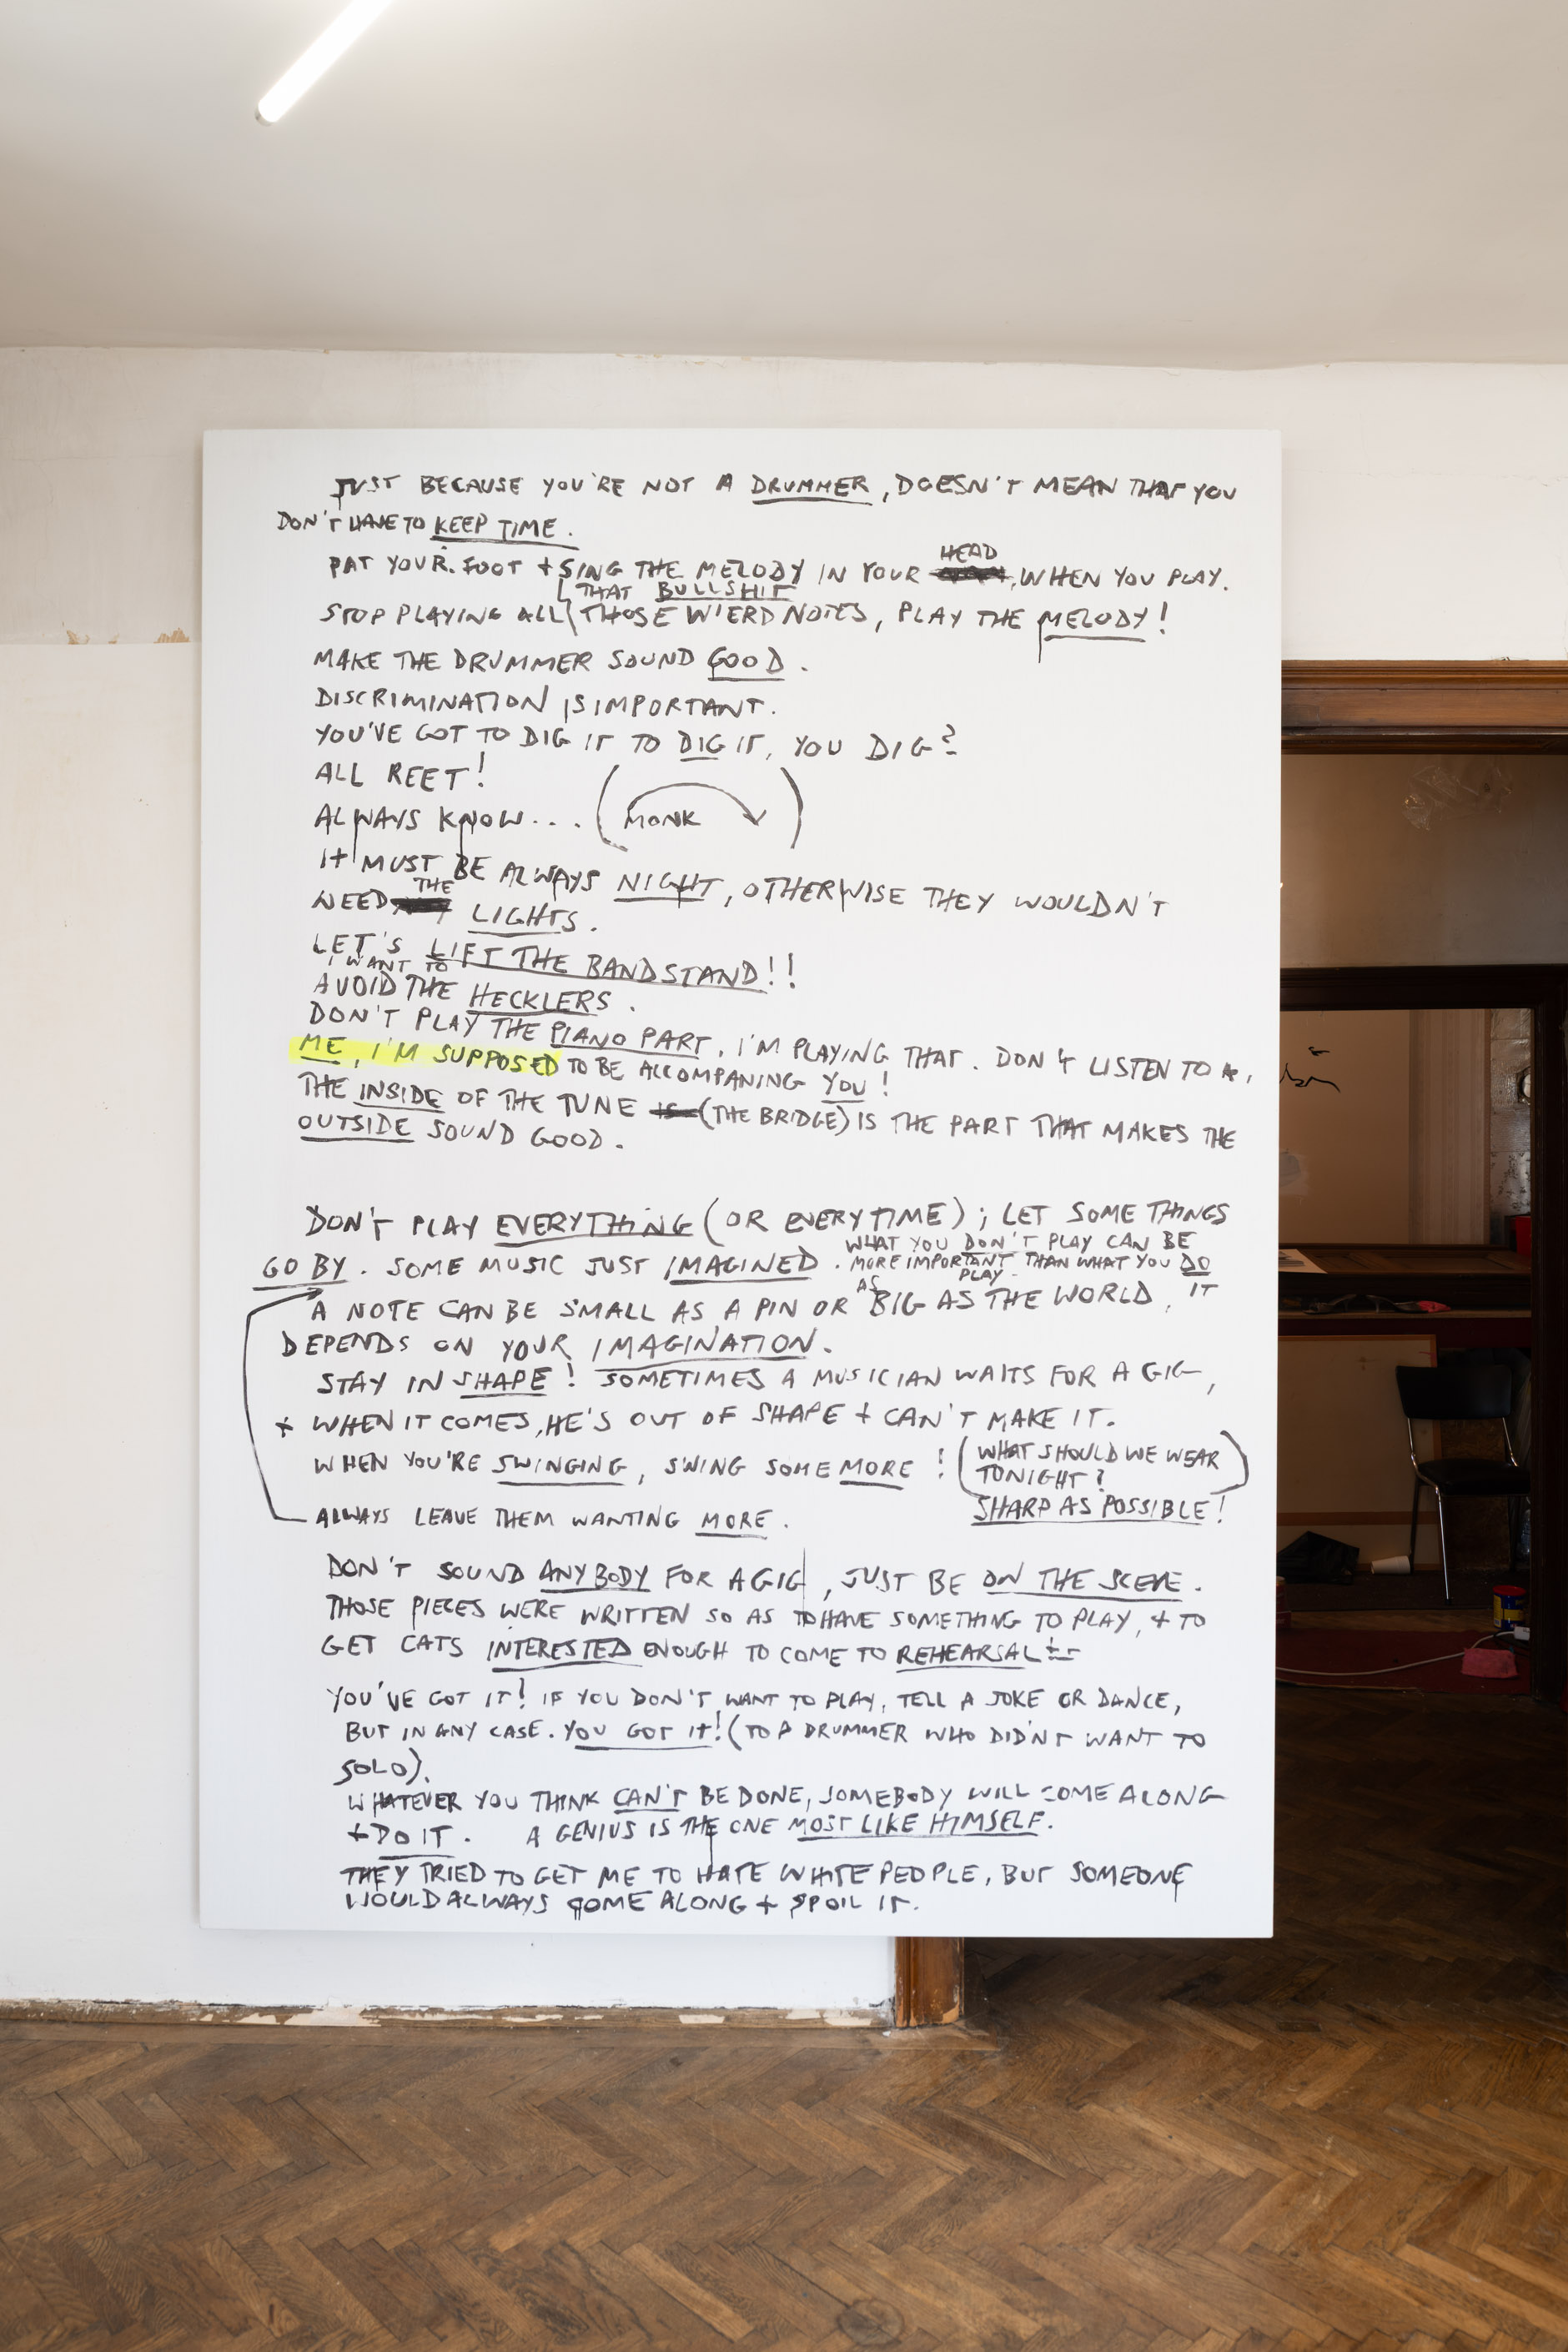 JUST BECAUSE YOU'RE NOT A DRUMMER, DOESN'T MEAN THAT YOU
DON'T HAVE TO KEEP TIME.
PAT YOUR FOOT + SING THE MELODY IN YOUR HEAD, WHEN YOU PLAY.
STOP PLAYING ALL THAT BULLSHIT
THOSE WIERD NOTES, PLAY THE MELODY!
MAKE THE DRUMMER SOUND GOOD.
DISCRIMINATION IS IMPORTANT.
YOU'VE GOT TO DIG IT TO DIG IT, YOU DIG?
ALL REET!
ALWAYS KNOW... (MONK)
IT MUST BE ALWAYS NIGHT, OTHERWISE THEY WOULDN'T
NEED THE LIGHTS.
LET'S LIFT THE BANDSTAND!!
I WANT TO
AVOID THE HECKLERS.
DON'T PLAY THE PIANO PART, I'M PLAYING THAT. DON'T LISTEN TO
ME, I'M SUPPOSED TO BE ACCOMPANING YOU!
THE INSIDE OF THE TUNE (THE BRIDGE) IS THE PART THAT MAKES THE
OUTSIDE SOUND GOOD.
DON'T PLAY EVERYTHING (OR EVERYTIME); LET SOME THINGS
GO BY. SOME MUSIC JUST IMAGINED.
WHAT YOU DON'T PLAY CAN BE
MORE IMPORTANT THAN WHAT YOU DO
PLAY.
A NOTE CAN BE SMALL AS A PIN OR AS BIG AS THE WORLD, IT
DEPENDS ON YOUR IMAGINATION.
STAY IN SHAPE! SOMETIMES A MUSICIAN WAITS FOR A GIG,
+ WHEN IT COMES, HE'S OUT OF SHAPE + CAN'T MAKE IT.
WHEN YOU'RE SWINGING, SWING SOME MORE!
(WHAT SHOULD WE WEAR
TONIGHT?)
SHARP AS POSSIBLE!
ALWAYS LEAVE THEM WANTING MORE.
DON'T SOUND ANYBODY FOR A GIG, JUST BE ON THE SCENE.
THOSE PIECES WERE WRITTEN SO AS TO HAVE SOMETHING TO PLAY, + TO
GET CATS INTERESTED ENOUGH TO COME TO REHEARSAL!
YOU'VE GOT IT! IF YOU DON'T WANT TO PLAY, TELL A JOKE OR DANCE,
BUT IN ANY CASE. YOU GOT IT! (TO A DRUMMER WHO DIDN'T WANT TO
SOLO).
WHATEVER YOU THINK CAN'T BE DONE, SOMEBODY WILL COME ALONG
+ DO IT. A GENIUS IS THE ONE MOST LIKE HIMSELF.
THEY TRIED TO GET ME TO HATE WHITE PEOPLE, BUT SOMEONE
WOULD ALWAYS COME ALONG + SPOIL IT.